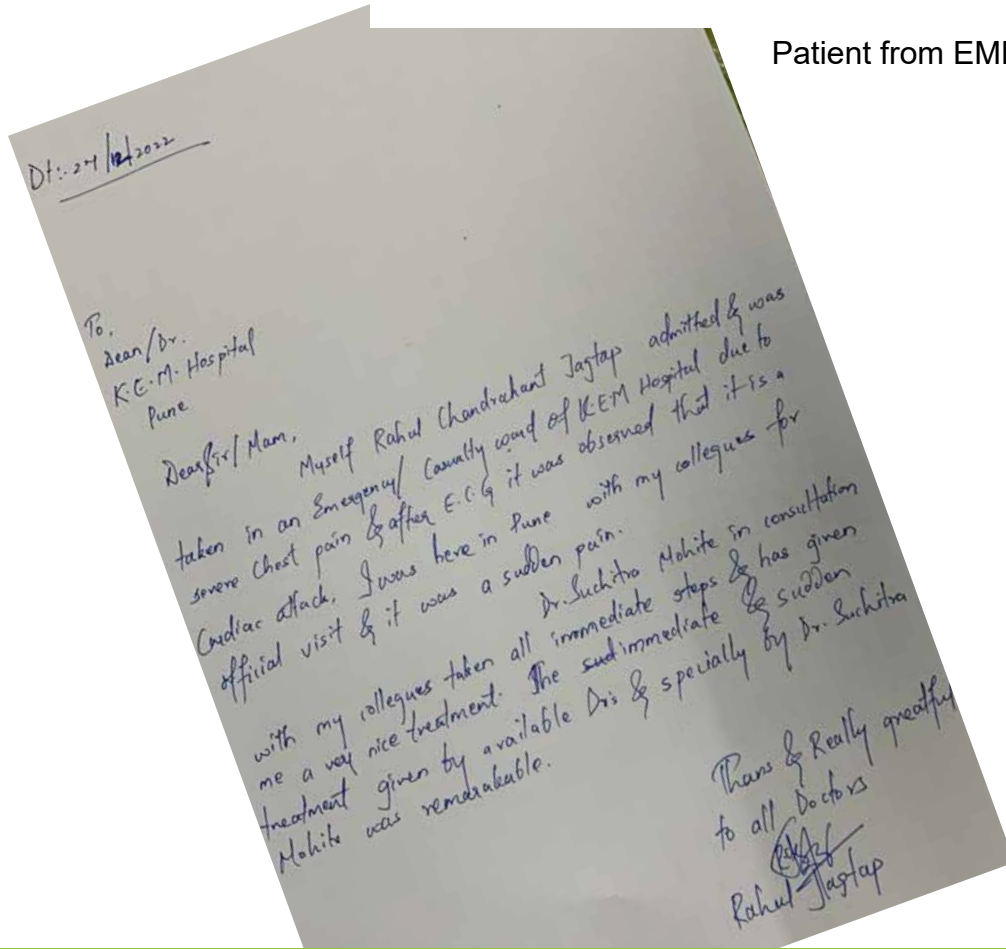 Patient from EM
Dt:- 27/12/2022
To,
Dean/Dr.
K.E.M. Hospital
Pune
Dear Sir/Mam,
Myself Rahul Chandrakant Jagtap admitted & was
taken in an Emergency/Casualty ward of KEM Hospital due to
severe chest pain & after E.C.G it was observed that it is a
Cardiac attack. I was here in Pune with my collegues for
official visit & it was a sudden pain.
Dr. Suchitra Mohite in consultation
with my collegues taken all immediate steps & has given
me a very nice treatment. The immediate & sudden
treatment given by available Drs & specially by Dr. Suchitra
Mohite was remarakable.
Thans & Really greatful
to all Doctors
Rahul Jagtap